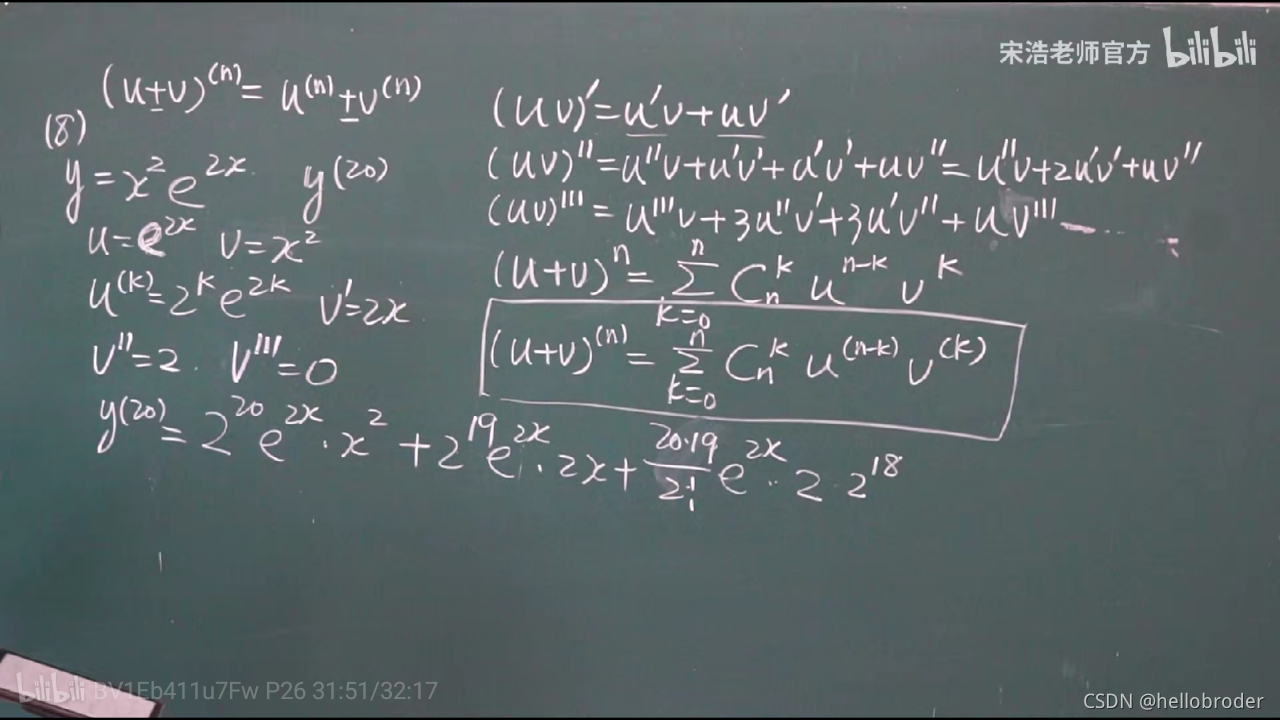 宋浩老师官方 bilibili
(u±v)^(n) = u^(n) ± v^(n)
(8)
y = x² e^{2x}. y^(20)
u = e^{2x} v = x²
u^(k) = 2^k e^{2k} v' = 2x
v'' = 2. v''' = 0
(uv)' = u'v + uv'
(uv)'' = u''v + u'v' + u'v' + uv'' = u''v + 2u'v' + uv''
(uv)''' = u'''v + 3u''v' + 3u'v'' + uv''' ……
(u+v)^n = Σ_{k=0}^{n} C_n^k u^{n-k} v^k
(u+v)^(n) = Σ_{k=0}^{n} C_n^k u^(n-k) v^(k)
y^(20) = 2^{20} e^{2x} · x² + 2^{19} e^{2x} · 2x + \frac{20·19}{2!} e^{2x} · 2 · 2^{18}
bilibili BV1Eb411u7Fw P26 31:51/32:17
CSDN @hellobroder